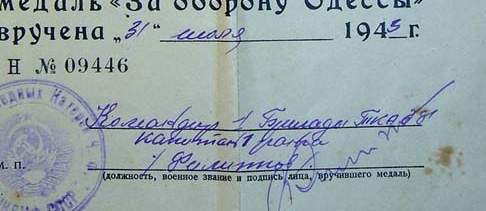 медаль «За оборону Одессы»
вручена „31" июля 1945 г.
Н № 09446
Командир 1 Бригады ТКА КБФ
капитан 1 ранга
/ Филиппов /
М. П.
(должность, военное звание и подпись лица, вручившего медаль)